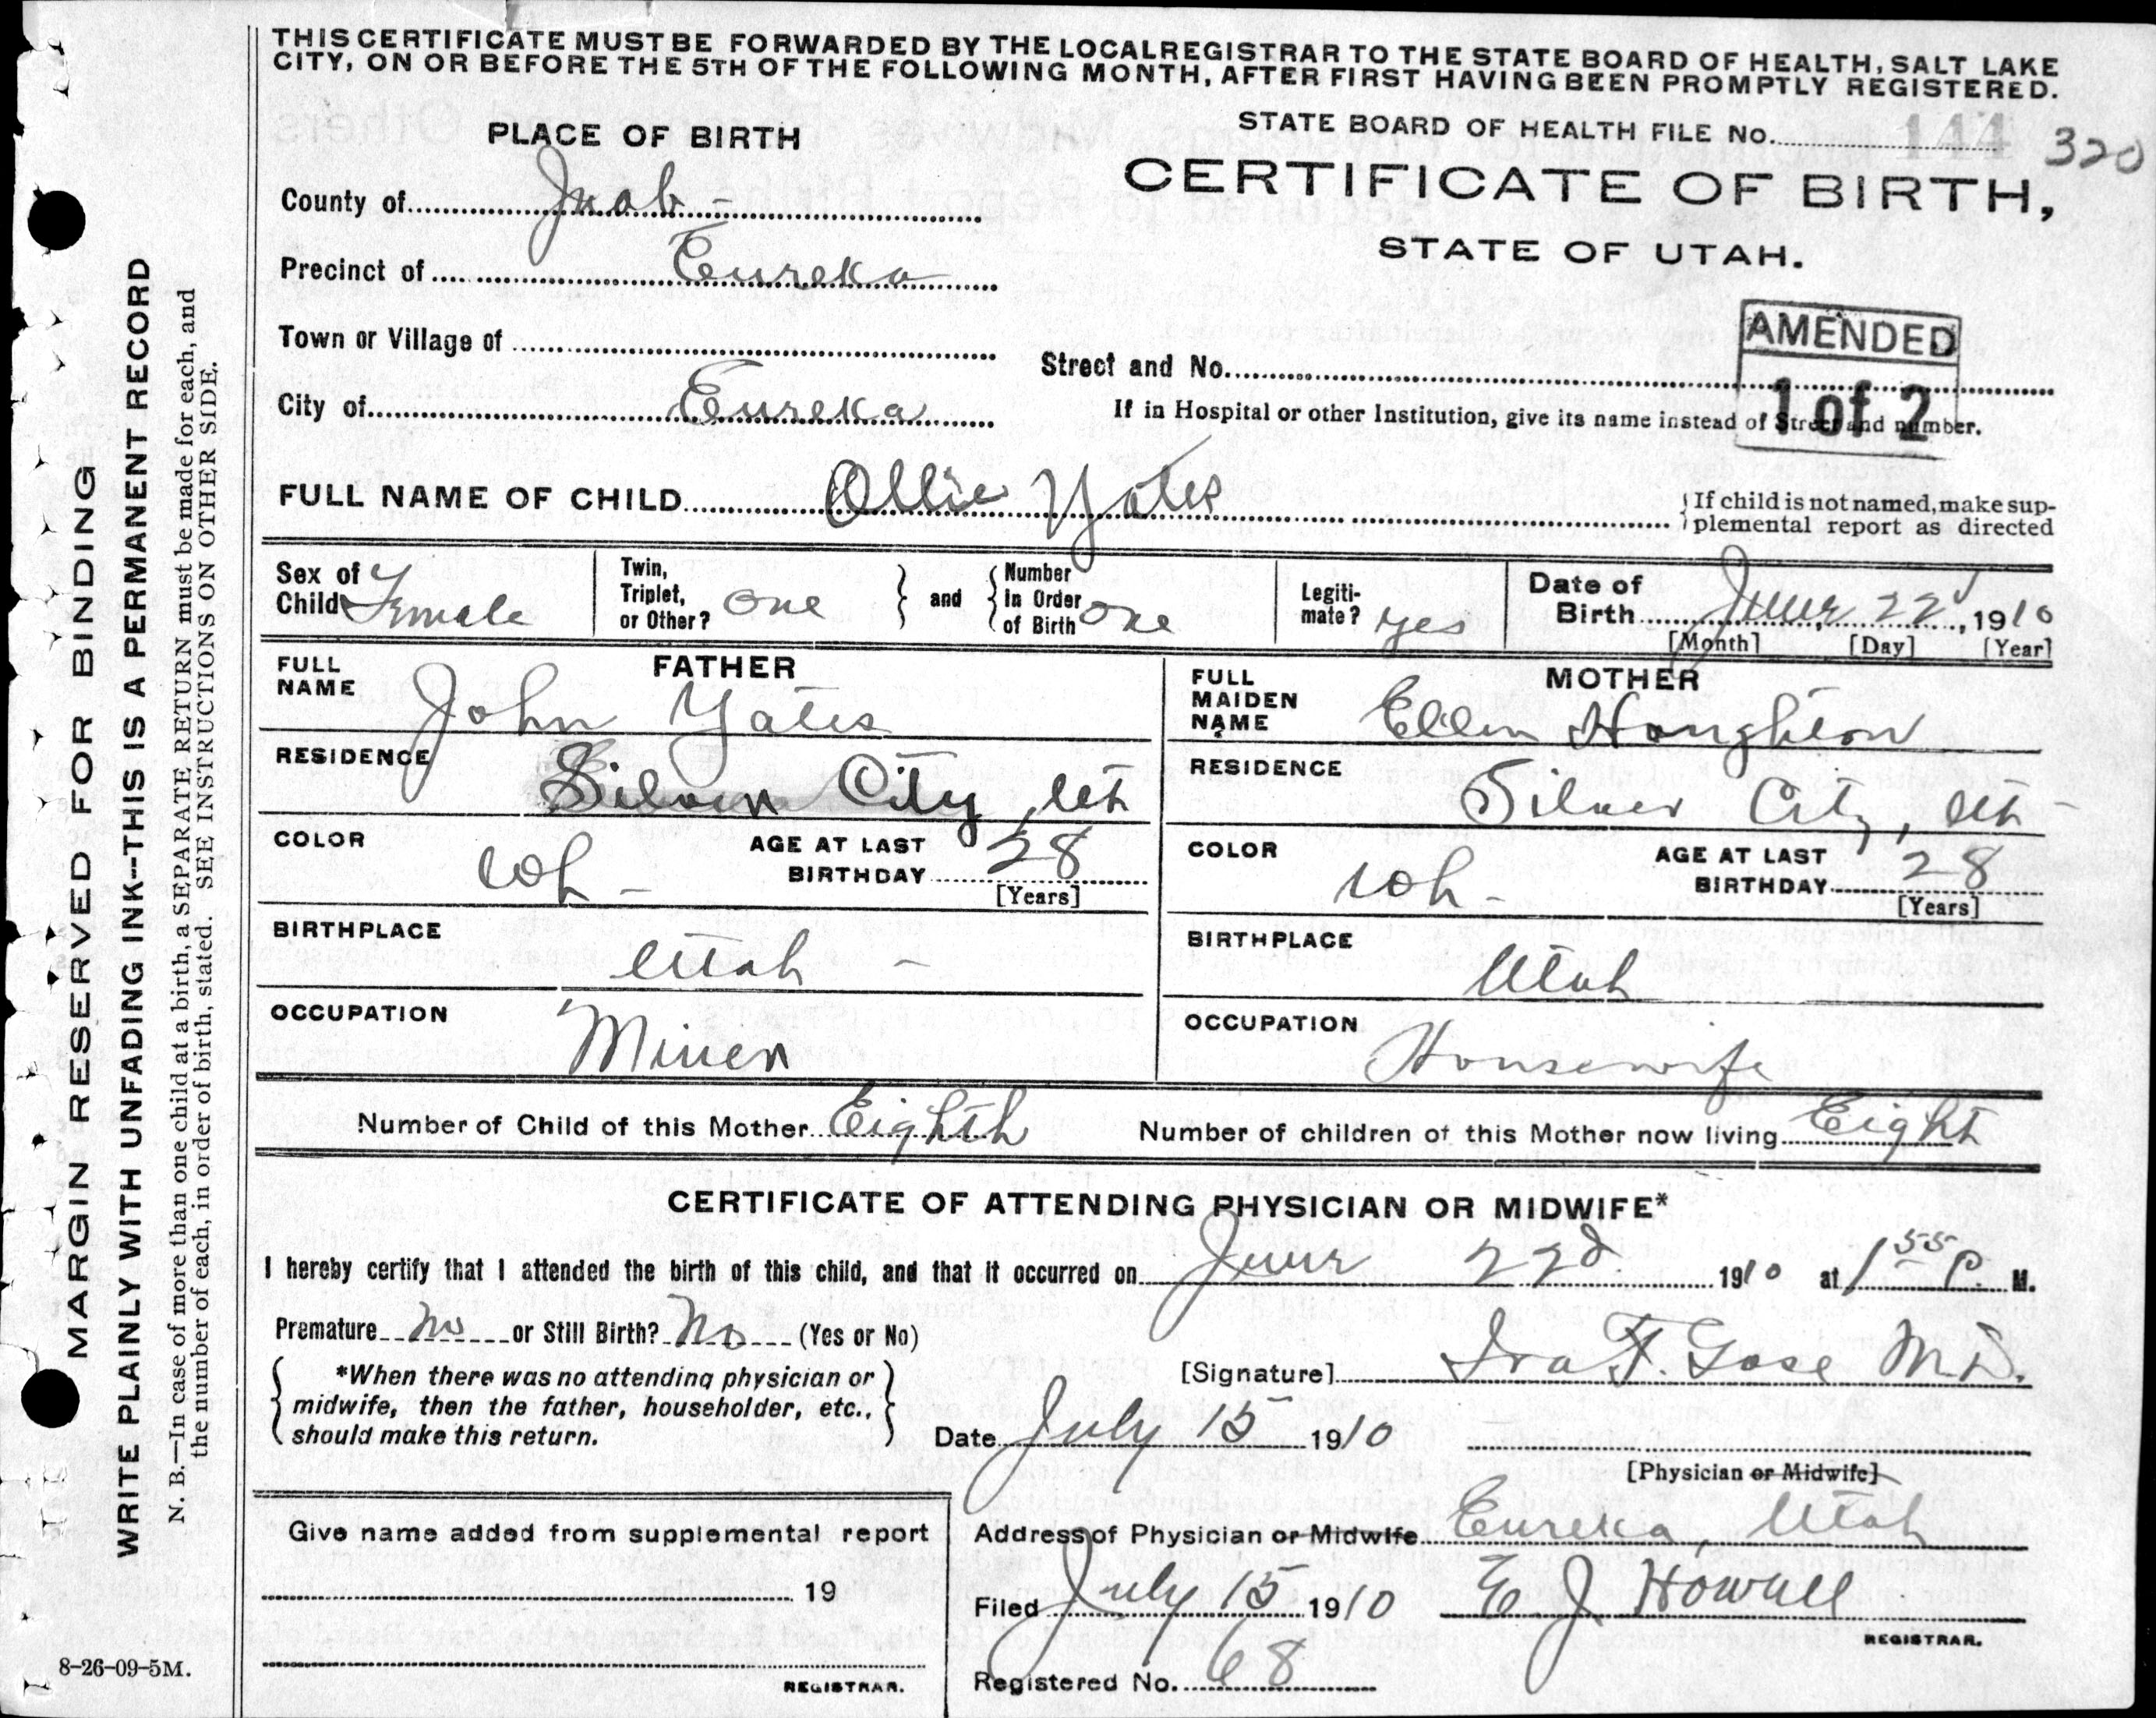 THIS CERTIFICATE MUST BE FORWARDED BY THE LOCAL REGISTRAR TO THE STATE BOARD OF HEALTH, SALT LAKE
CITY, ON OR BEFORE THE 5TH OF THE FOLLOWING MONTH, AFTER FIRST HAVING BEEN PROMPTLY REGISTERED.
STATE BOARD OF HEALTH FILE No. 144 320
PLACE OF BIRTH
CERTIFICATE OF BIRTH,
STATE OF UTAH.
County of Juab-
Precinct of Eureka
AMENDED
1 of 2
Town or Village of
Street and No.
City of Eureka
If in Hospital or other Institution, give its name instead of Street and number.
FULL NAME OF CHILD Ollie Yates
If child is not named, make sup-
plemental report as directed
Sex of
Child Female
Twin,
Triplet,
or Other? One
and
Number
in Order
of Birth One
Legiti-
mate? yes
Date of
Birth June, 22d, 1910
[Month] [Day] [Year]
FATHER
FULL
NAME
John Yates
MOTHER
FULL
MAIDEN
NAME
Ellen Houghton
RESIDENCE
Silver City, Ut
RESIDENCE
Silver City, Ut-
COLOR
Wh-
AGE AT LAST
BIRTHDAY 28
[Years]
COLOR
Wh-
AGE AT LAST
BIRTHDAY 28
[Years]
BIRTHPLACE
Utah -
BIRTHPLACE
Utah
OCCUPATION
Miner
OCCUPATION
Housewife
Number of Child of this Mother Eighth
Number of children of this Mother now living Eight
CERTIFICATE OF ATTENDING PHYSICIAN OR MIDWIFE*
I hereby certify that I attended the birth of this child, and that it occurred on June 22d 1910 at 1 55 P. M.
Premature No or Still Birth? No (Yes or No)
*When there was no attending physician or
midwife, then the father, householder, etc.,
should make this return.
[Signature] Ira F. Gose M.D.
Date July 15 1910
[Physician or Midwife]
Give name added from supplemental report
19
REGISTRAR.
Address of Physician or Midwife Eureka, Utah
Filed July 15 1910 E J Howell
REGISTRAR.
Registered No. 68
8-26-09-5M.
MARGIN RESERVED FOR BINDING
WRITE PLAINLY WITH UNFADING INK--THIS IS A PERMANENT RECORD
N. B.—In case of more than one child at a birth, a SEPARATE RETURN must be made for each, and
the number of each, in order of birth, stated. SEE INSTRUCTIONS ON OTHER SIDE.